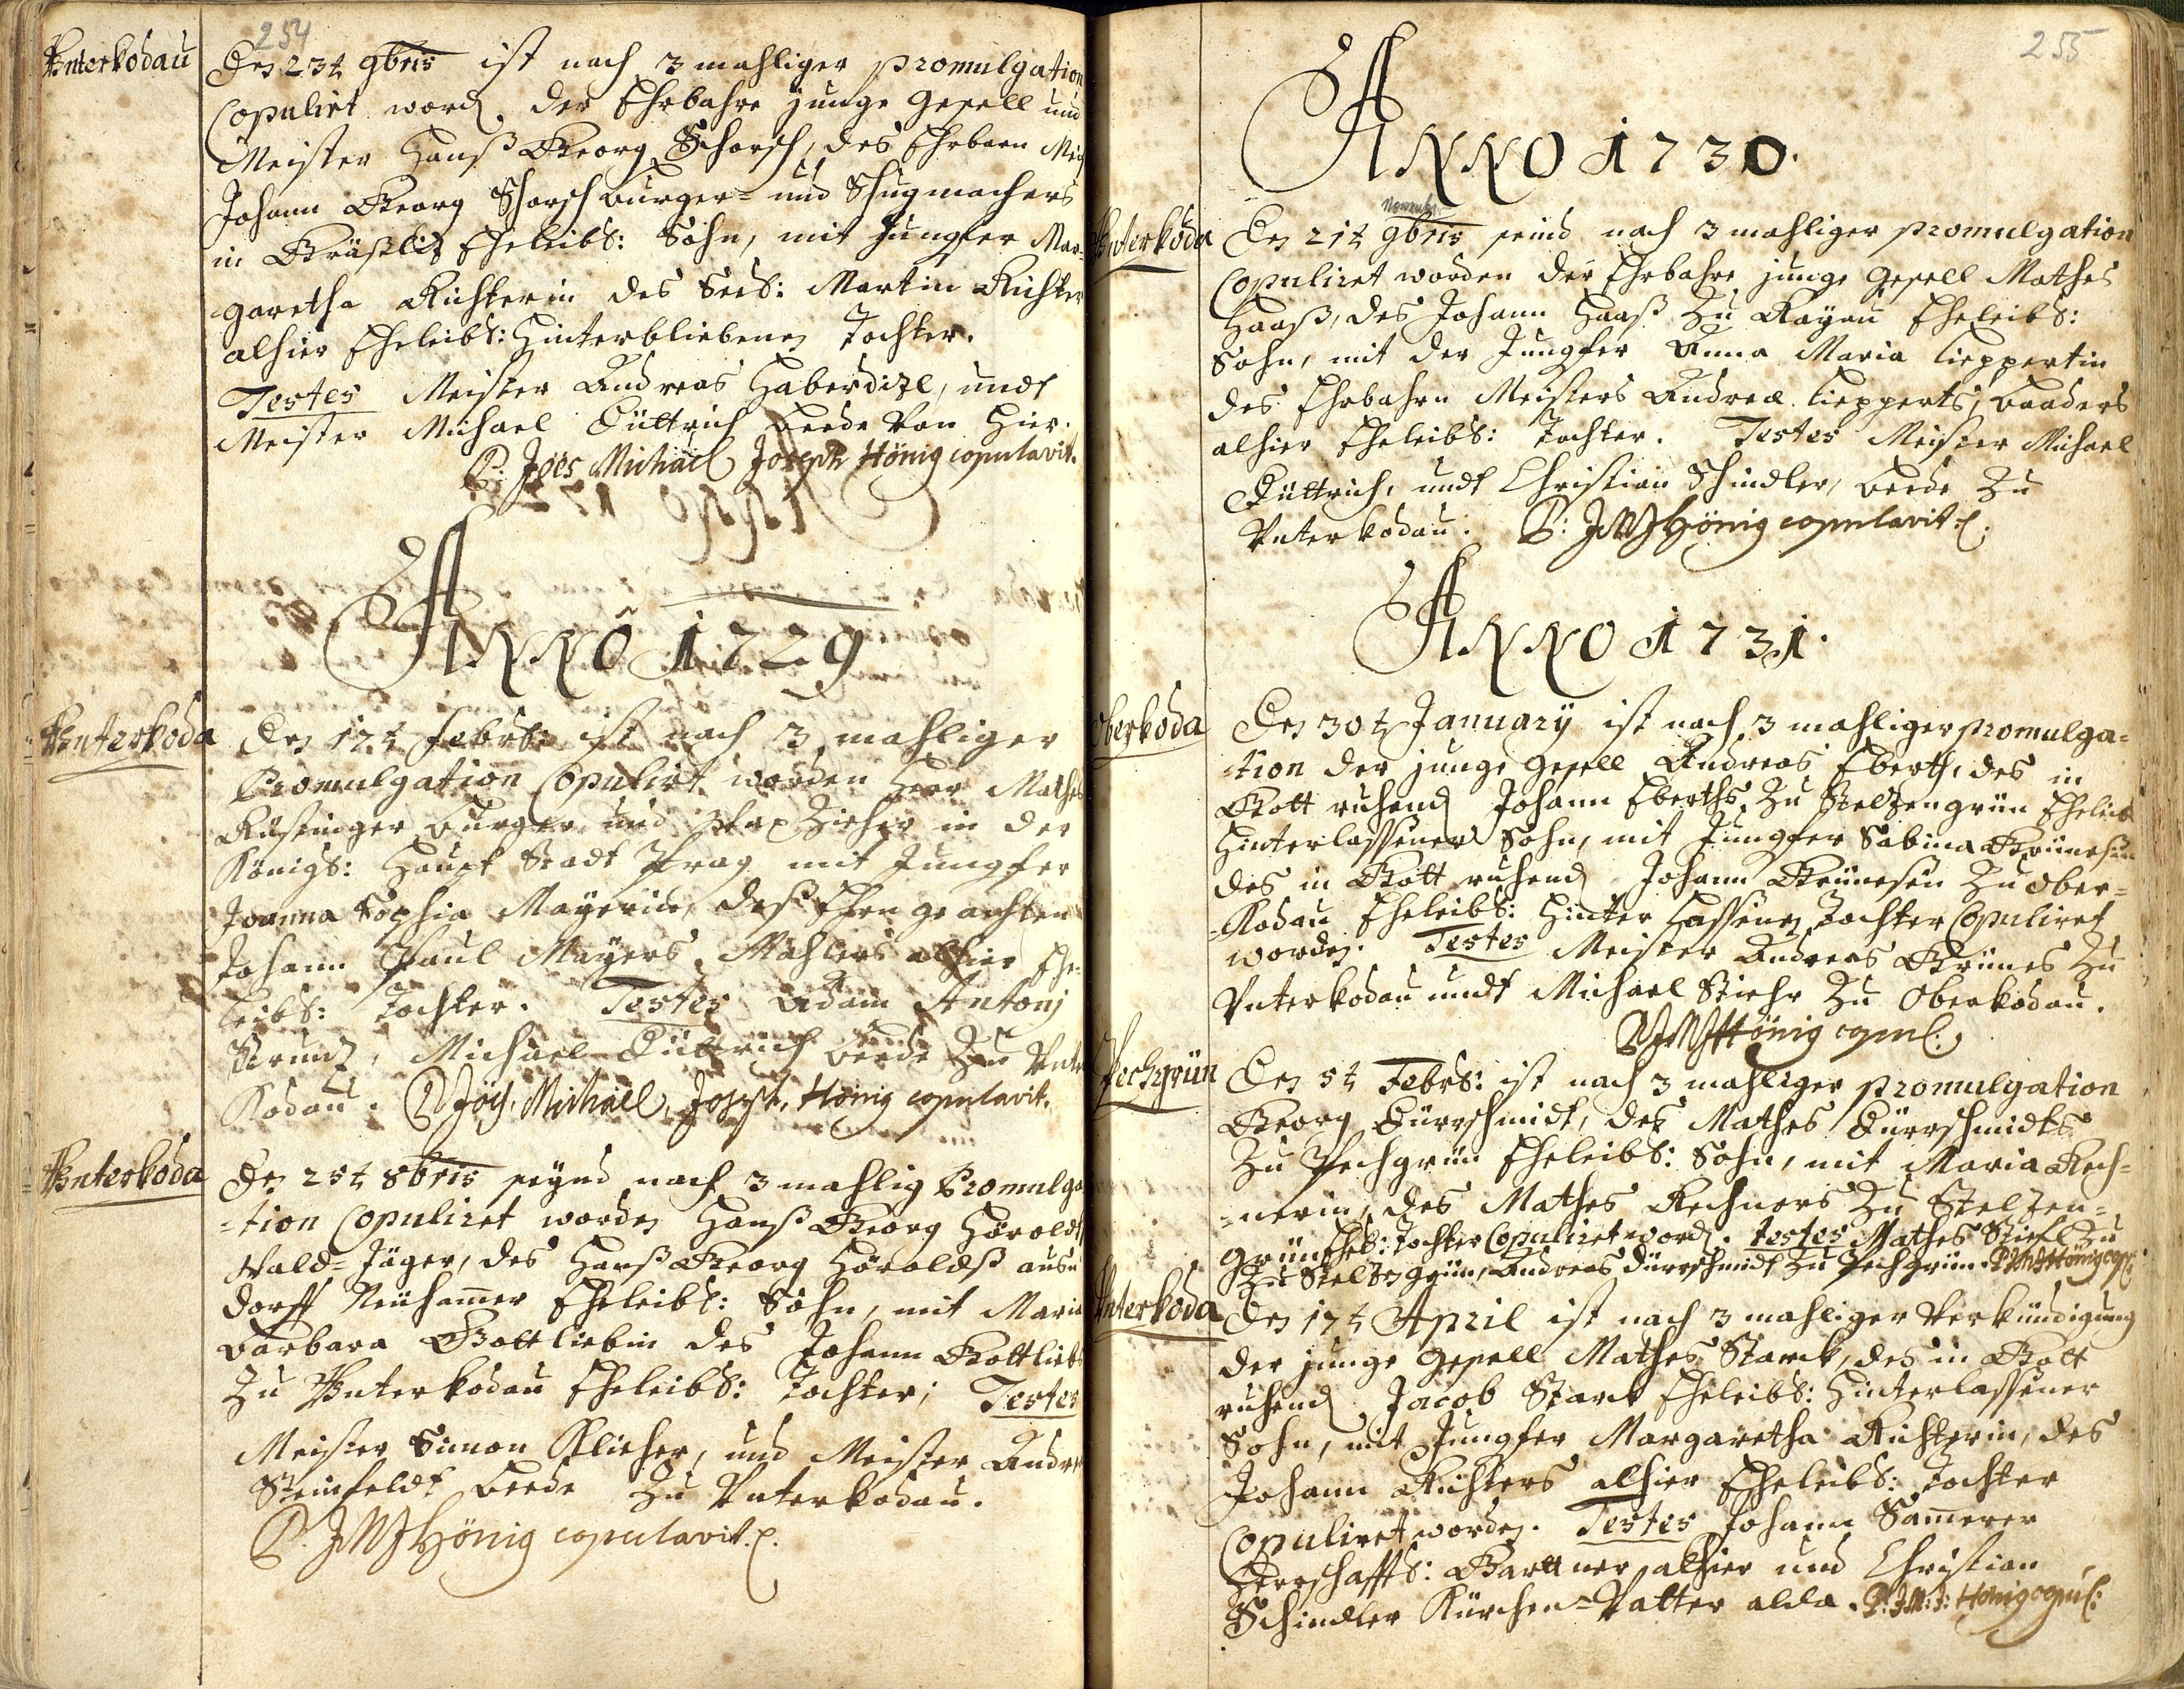 254
Unterkodau
Den 23t 9bris ist nach 3 mahliger promulgation
Copulirt word. der Ehrbahre junge Gesell und
Meister Hanß Georg Schorsch, des Ehrbarn
Johann Georg Schorsch burger- und Schugmachers
in Gräßlitz Eheleibl: Sohn, mit Jungfer Mar-
garetha Richterin des Seel: Martin Richter
alhier Eheleibl: Hinterbliebenen Tochter.
Testes Meister Andreas Haberditzl, undt
Meister Michael Düttrich beede von hier.
P: Joës Michäel Joseph Hönig copulavit.
ANNO 1729
Unterkoda
Den 17t febrl: ist nach 3 mahliger
Promulgation Copulirt worden Herr Mathes
burger und in der
Königl: Haupt Stadt Prag mit Jungfer
Joanna Sophia Mayerin, deß Ehren geachten
Johann Paul Mayers Mahlers alhier Ehe-
leibl: Tochter. Testes Adam Antonj
Michael Düttrich beede Zu Unter
Kodau. P Joës. Michäel, Joseph, Hönig copulavit.
Unterkoda
Den 25t 8bris seynd nach 3 mahlig Promulga
-tion Copuliret worden Hanß Georg Höroldt
Wald-Jäger, des Hanß Georg Höroldß
dorff Neühamer Eheleibl: Sohn, mit Maria
Barbara Gottliebin des Johann Gottliebs
Zu Unterkodau Eheleibl: Tochter; Testes
Meister Simon und Meister Andre
Steinfeldt beede Zu Unterkodau.
P. JMJHönig copulavit.
255
ANNO 1730.
Novembr.
Unterkoda
Den 21t 9bris seind nach 3 mahliger promulgation
Copuliret worden der Ehrbahre junge Gesell Mathes
Haaß, des Johann Haaß Zu Eheleibl:
Sohn, mit der Jungfer Anna Maria Lieppertin
des Ehrbahrn Meisters Andreæ Liepperts, baaders
alhier Eheleibl: Tochter. Testes Meister Michael
Düttrich, undt Christian Schindler, beede Zu
Unterkodau. P: JMJHönig copulavit
ANNO 1731.
Oberkoda
Den 30t January ist nach 3 mahliger promulga-
-tion der junge Gesell Andreas Eberth, des in
Gott ruhend Johann Eberths Zu Stelzengrün Eheleibl
Hinterlassener Sohn, mit Jungfer Sabina
des in Gott ruhend Johann Zu Ober-
-Kodau Eheleibl: Hinter Lassenen Tochter Copuliret
worden. Testes Meister Andreas Grünes Zu
Unterkodau undt Michael Stiehr Zu Oberkodau.
PJMJHönig copul:
Pechgrün
Den 5t Febrl: ist nach 3 mahliger promulgation
Georg Dürrschmidt, des Mathes Dürrschmidts
Zu Pechgrün Eheleibl: Sohn, mit Maria Rech-
-nerin, des Mathes Rechners Zu Stelzen-
grün Ehel: Tochter Copuliret word. testes Mathes Stiehl Zu
Zu Stelzengrün, Andreas Dürrschmidt Zu Pechgrün. PJMJHönig cop:
Unterkoda
Den 17t April ist nach 3 mahliger Verkündigung
der junge Gesell Mathes Starck, des in Gott
ruhend Jacob Starck Eheleibl: Hinterlassener
Sohn, mit Jungfer Margaretha Richterin, des
Johann Richters alhier Eheleibl: Tochter
Copuliret worden. Testes Johann Samerer
Herrschafftl: Gärttner alhier und Christian
Schindler Kürchen-Vatter alda. P: JM:J: Hönig copul: